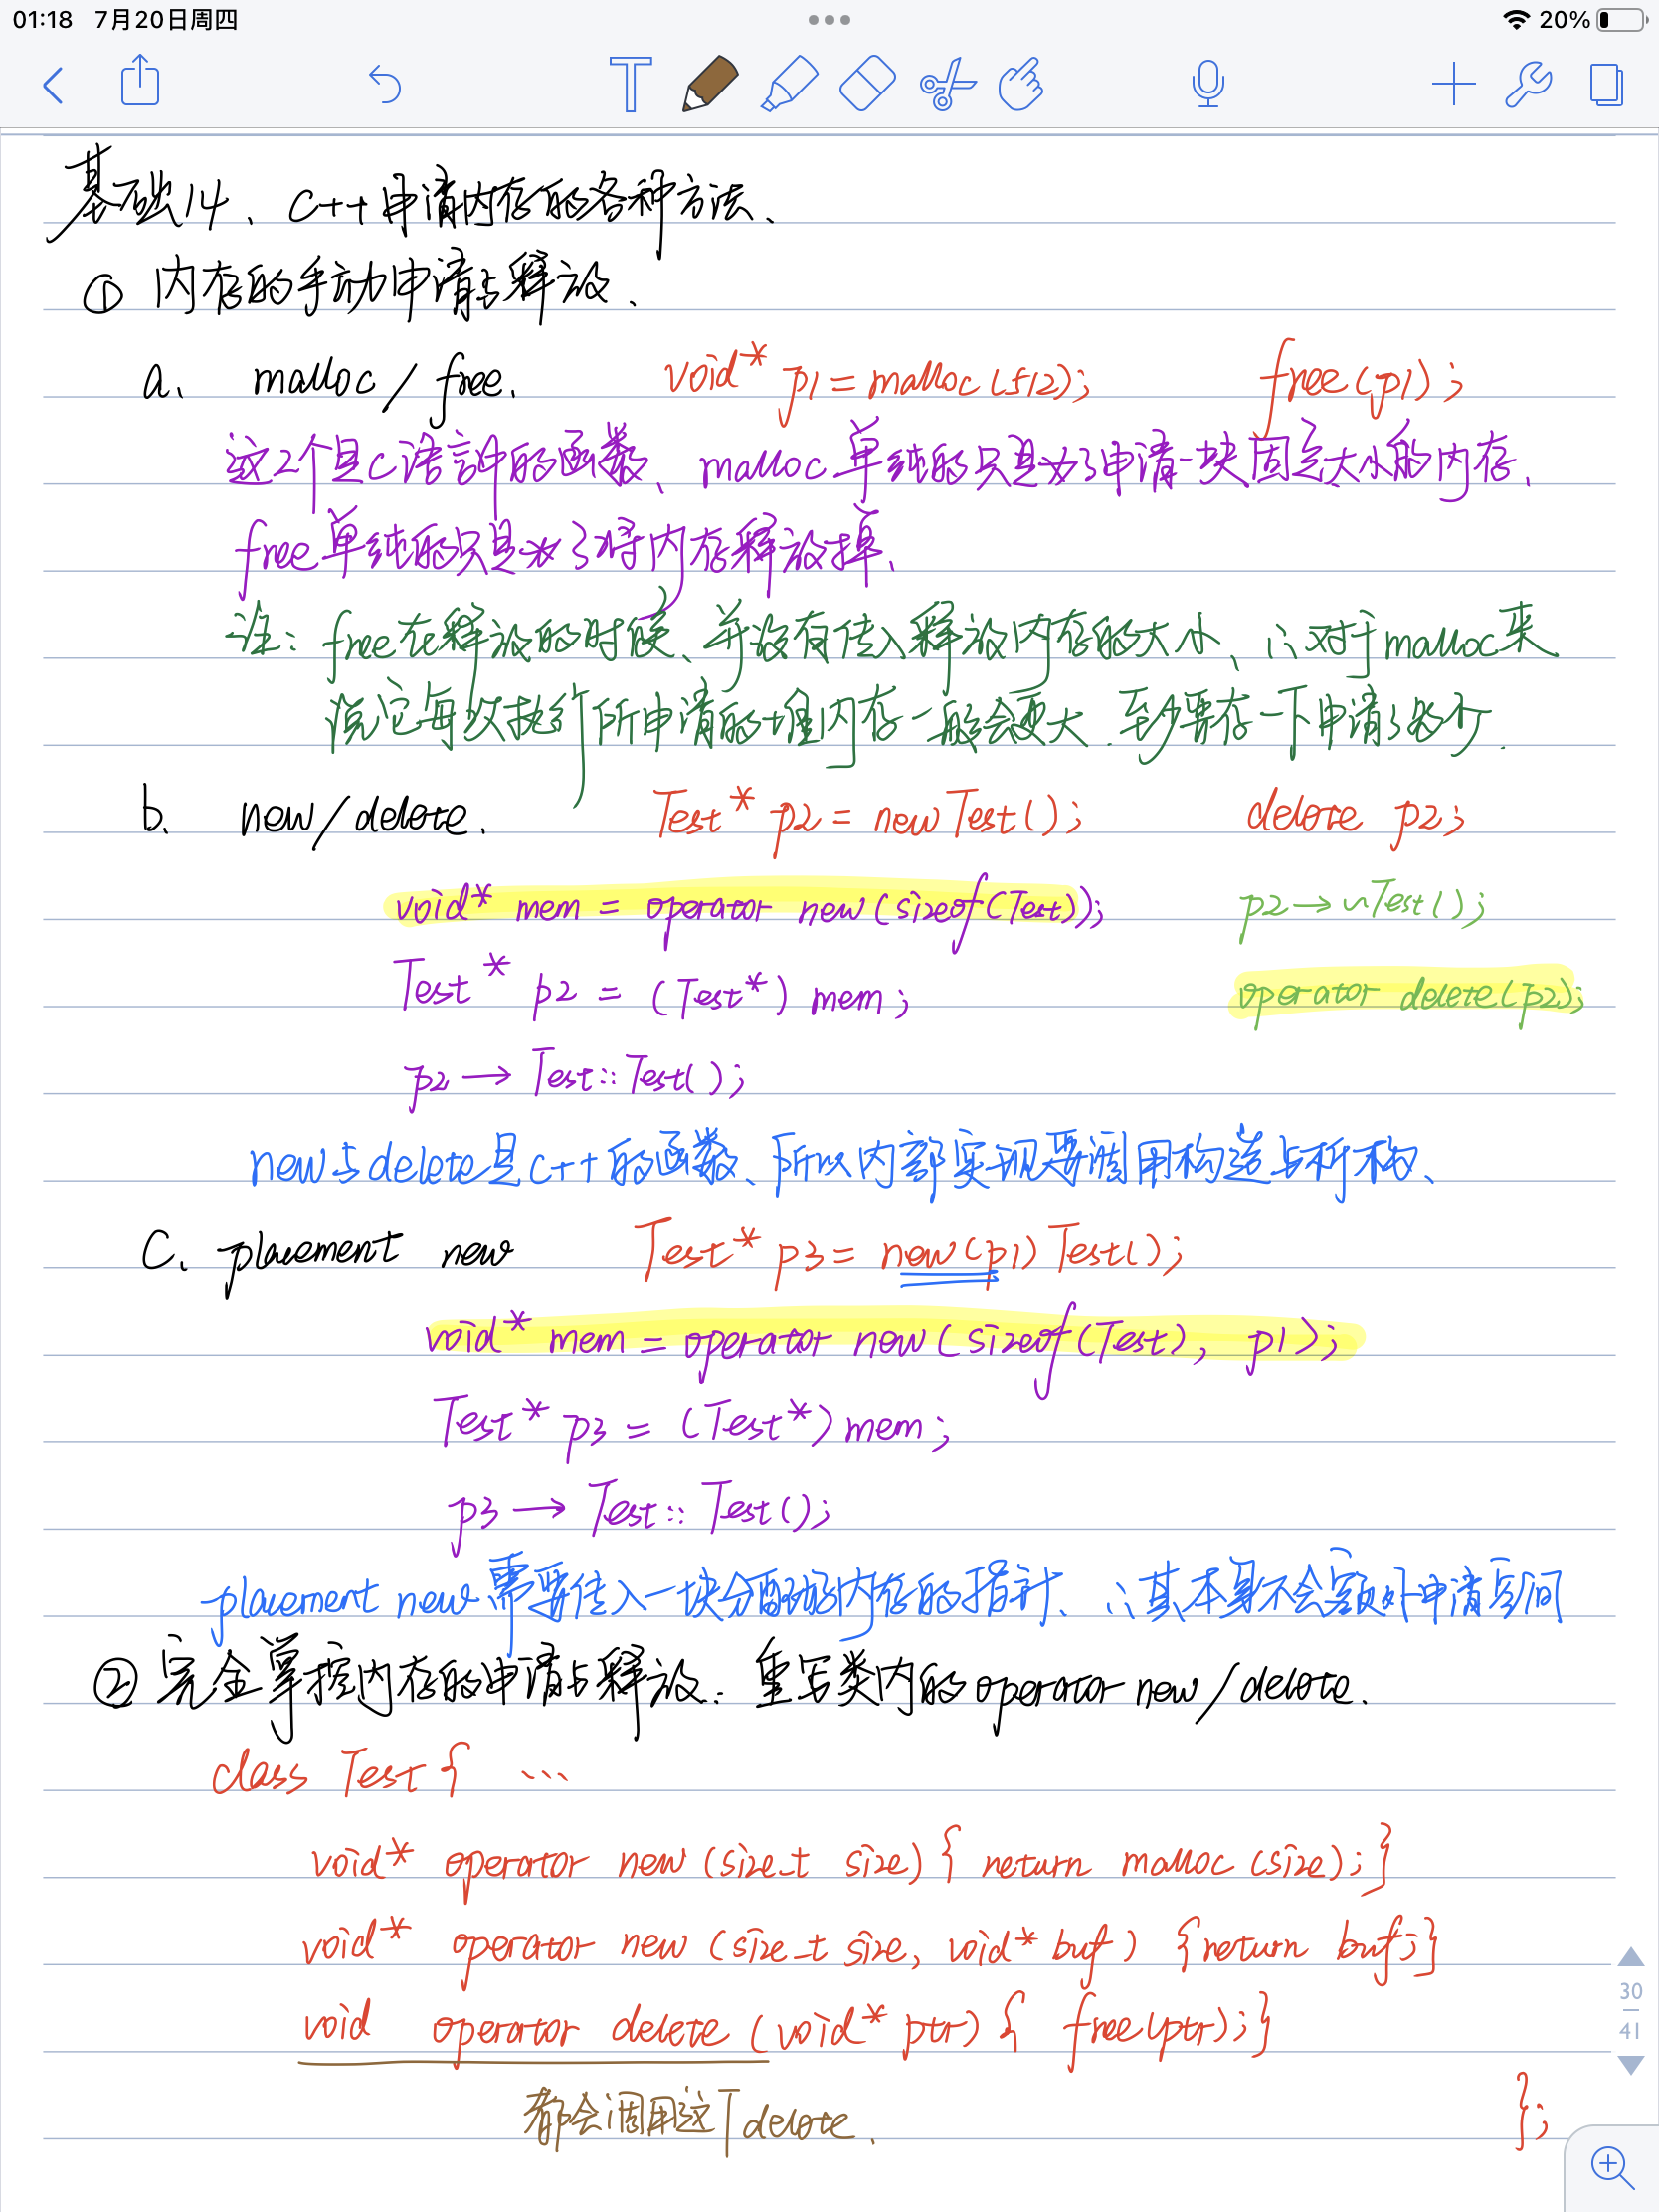 01:18 7月20日周四
20%
基础14、C++申请内存的各种方法、
① 内存的手动申请与释放、
a. malloc/free. void* p1 = malloc(512); free(p1);
这2个是C语言中的函数、malloc单纯的只是为了申请一块固定大小的内存、
free单纯的只是为了将内存释放掉、
注: free在释放的时候、并没有传入释放内存的大小、∴对于malloc来
说它每次执行所申请的堆内存一般会变大. 至少要存一下申请了多少个.
b. new/delete. Test* p2 = new Test(); delete p2;
void* mem = operator new(sizeof(Test)); p2→~Test();
Test* p2 = (Test*) mem; operator delete(p2);
p2→Test::Test();
new与delete是C++的函数、所以内部实现要调用构造与析构、
C. placement new Test* p3 = new(p1) Test();
void* mem = operator new(sizeof(Test), p1);
Test* p3 = (Test*) mem;
p3→Test::Test();
placement new需要传入一块分配好的内存的指针、∴其本身不会额外申请空间
② 完全掌控内存的申请与释放: 重写类内的operator new/delete.
class Test { ...
void* operator new (size_t size) { return malloc(size); }
void* operator new (size_t size, void* buf) { return buf; }
void operator delete (void* ptr) { free(ptr); }
};
都会调用这个delete.
30
41